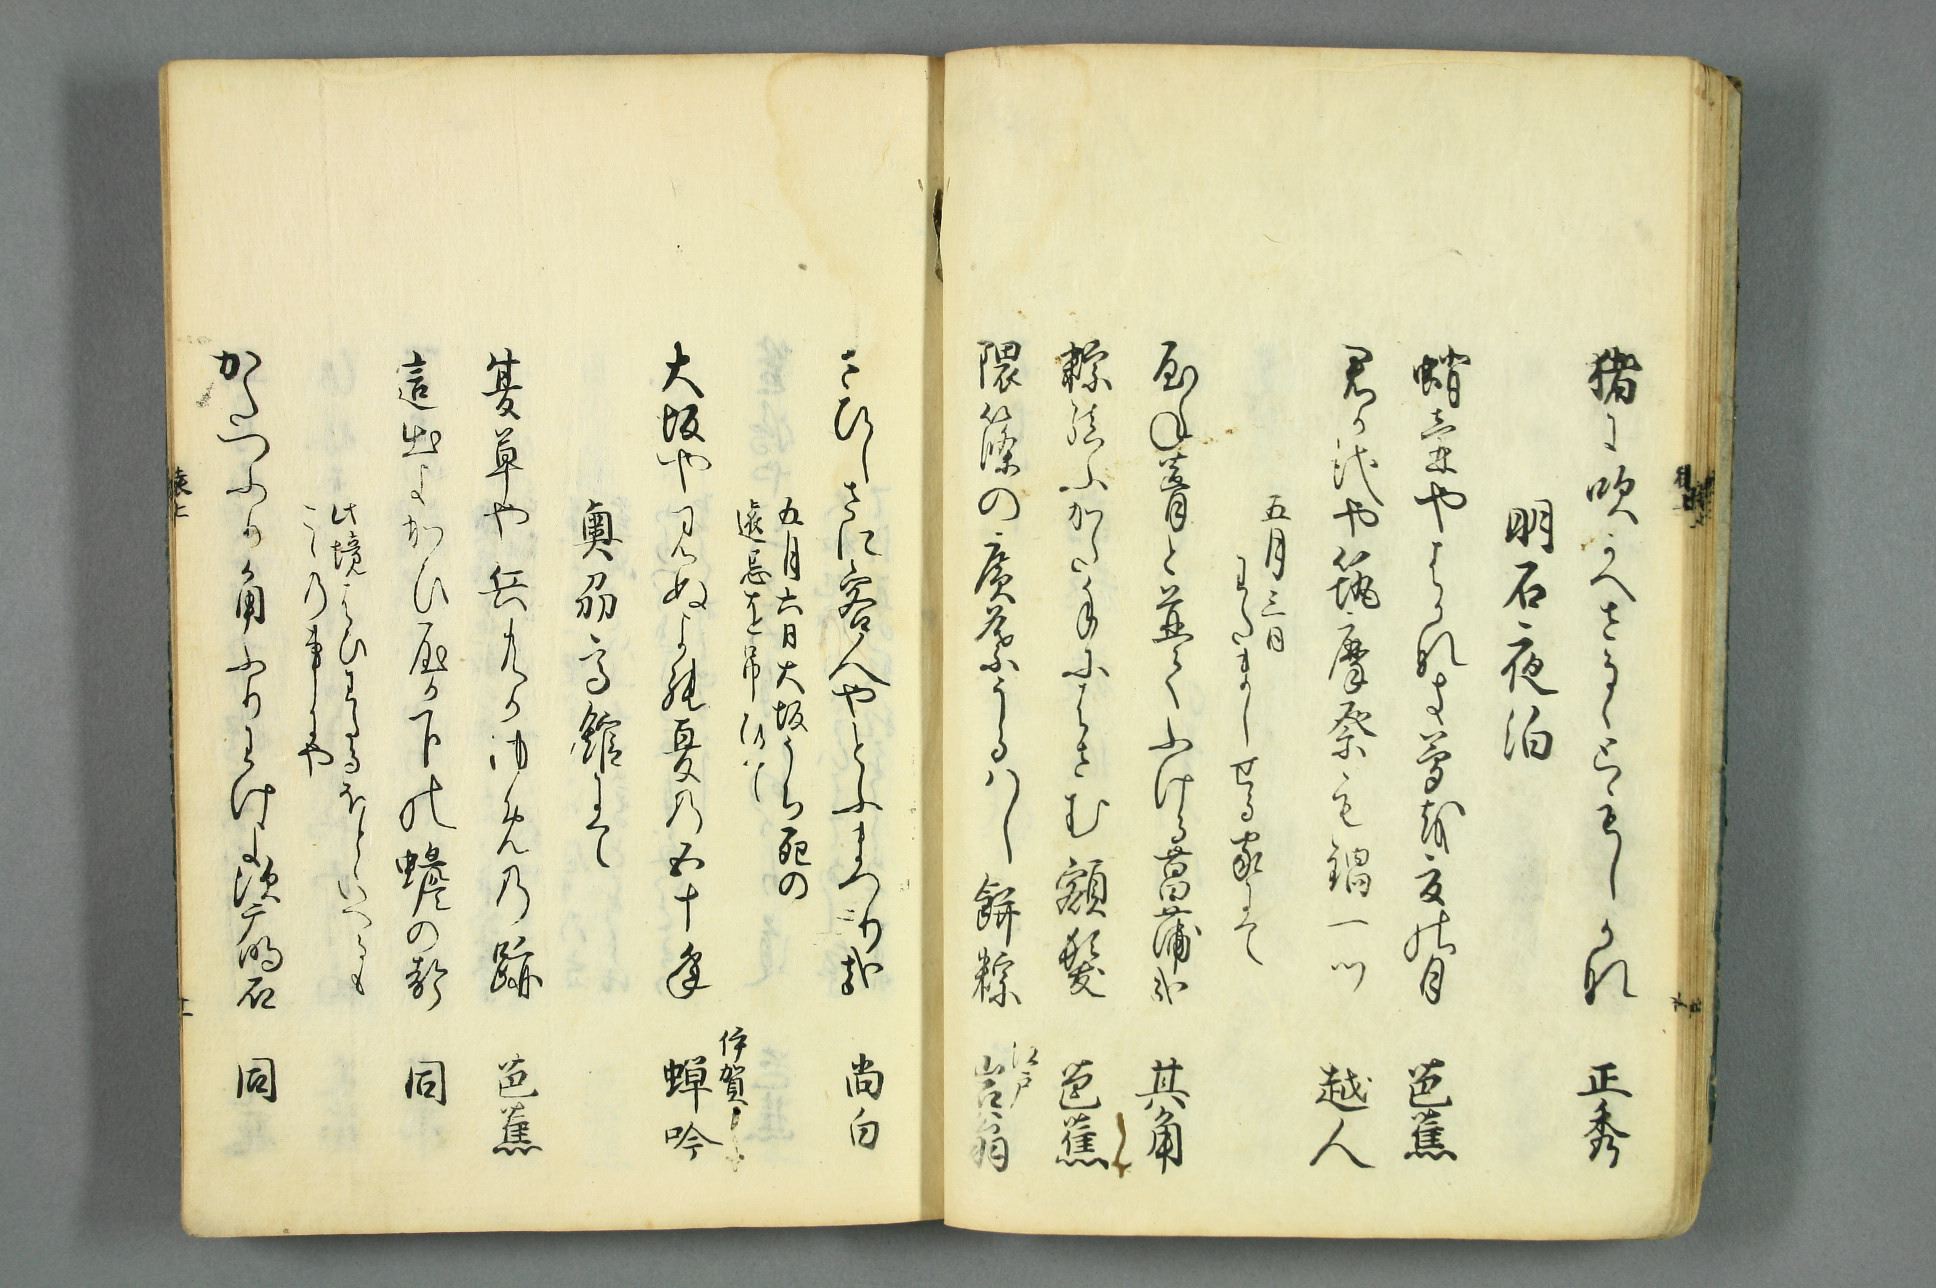 猪に吹かへさるゝともしかな 正秀
明石夜泊
蛸壺やはかなき夢を夏の月 芭蕉
君が代や筑摩祭も鍋一ツ 越人
五月三日
わたましせる家にて
屋ね葺と並てふける菖蒲哉 其角
粽結ふかた手にはさむ額髪 芭蕉
隈篠の廣葉うるはし餅粽 江戸 岩翁
さびしさに客人やとふまつり哉 尚白
五月六日大坂うち死の
遠忌を弔ひて
大坂や見ぬよの夏の五十年 伊賀 蝉吟
奥州高館にて
夏草や兵共がゆめの跡 芭蕉
這出よかひ屋が下の蟾の声 同
此境はひわたるほどといへるも
こゝの事にや
かたつふり角ふりわけよ須广明石 同
猿上